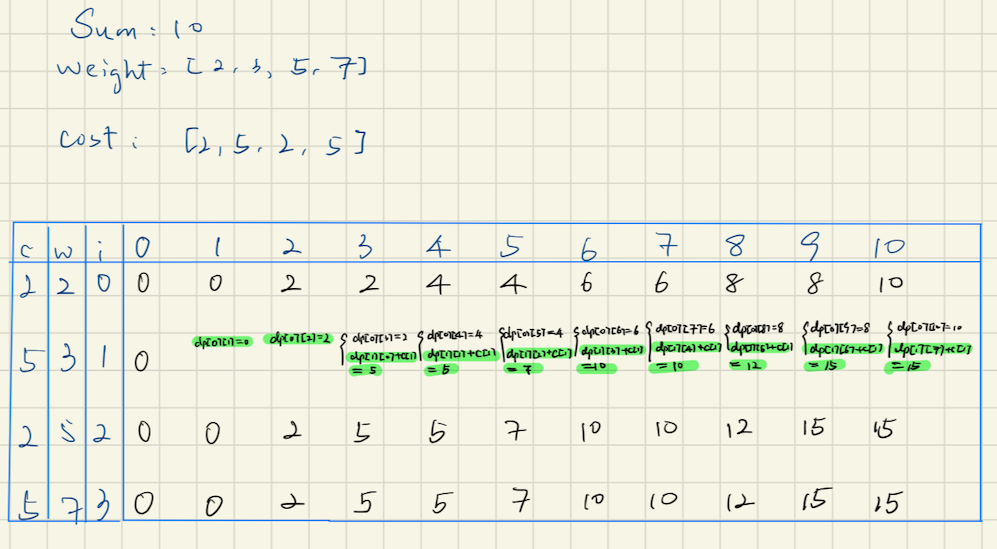 Sum: 10
weight: [2, 3, 5, 7]
cost: [2, 5, 2, 5]
c w i 0 1 2 3 4 5 6 7 8 9 10
2 2 0 0 0 2 2 4 4 6 6 8 8 10
dp[0][1]=0 dp[0][2]=2 { dp[0][3]=2 { dp[0][4]=4 { dp[0][5]=4 { dp[0][6]=6 { dp[0][7]=6 { dp[0][8]=8 { dp[0][9]=8 { dp[0][10]=10
5 3 1 0 dp[1][0]+c[1] dp[1][1]+c[1] dp[1][2]+c[1] dp[1][3]+c[1] dp[1][4]+c[1] dp[1][5]+c[1] dp[1][6]+c[1] dp[1][7]+c[1]
= 5 = 5 = 7 =10 = 10 = 12 = 15 = 15
2 5 2 0 0 2 5 5 7 10 10 12 15 15
5 7 3 0 0 2 5 5 7 10 10 12 15 15